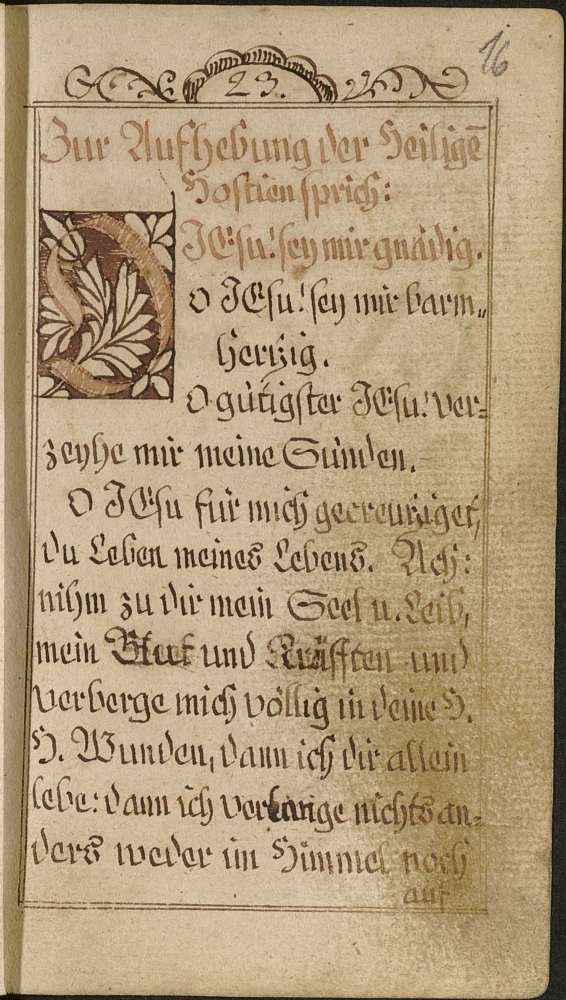 16
23.
Zur Aufhebung der Heiligē
Hostien sprich:
O JEsu! sey mir gnädig.
O JEsu! sey mir barm„
hertzig.
O gütigster JEsu! ver=
zeyhe mir meine Sünden.
O JEsu für mich gecreutziget,
du Leben meines Lebens. Ach:
nihm zu dir mein Seel u. Leib,
mein Blut und Kräfften und
verberge mich völlig in deine H.
H. Wunden, dann ich dir allein
lebe: dann ich verlange nichts an=
ders weder im Himmel noch
auf